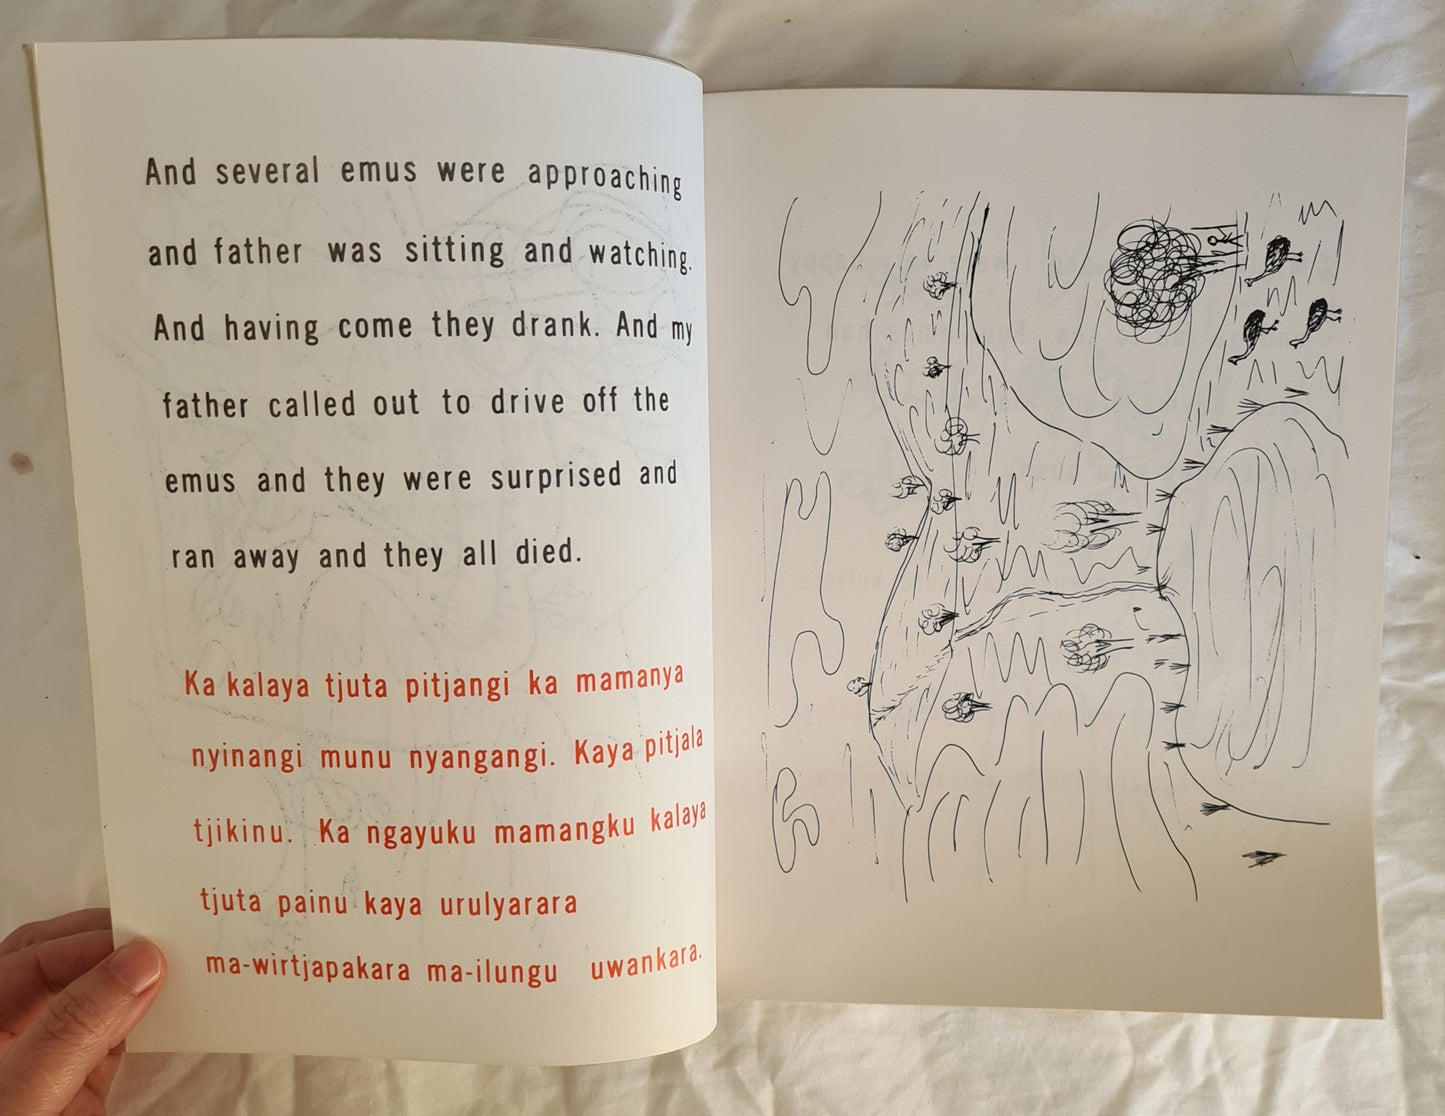 And several emus were approaching
and father was sitting and watching.
And having come they drank. And my
father called out to drive off the
emus and they were surprised and
ran away and they all died.
Ka kalaya tjuta pitjangi ka mamanya
nyinangi munu nyangangi. Kaya pitjala
tjikinu. Ka ngayuku mamangku kalaya
tjuta painu kaya urulyarara
ma-wirtjapakara ma-ilungu uwankara.